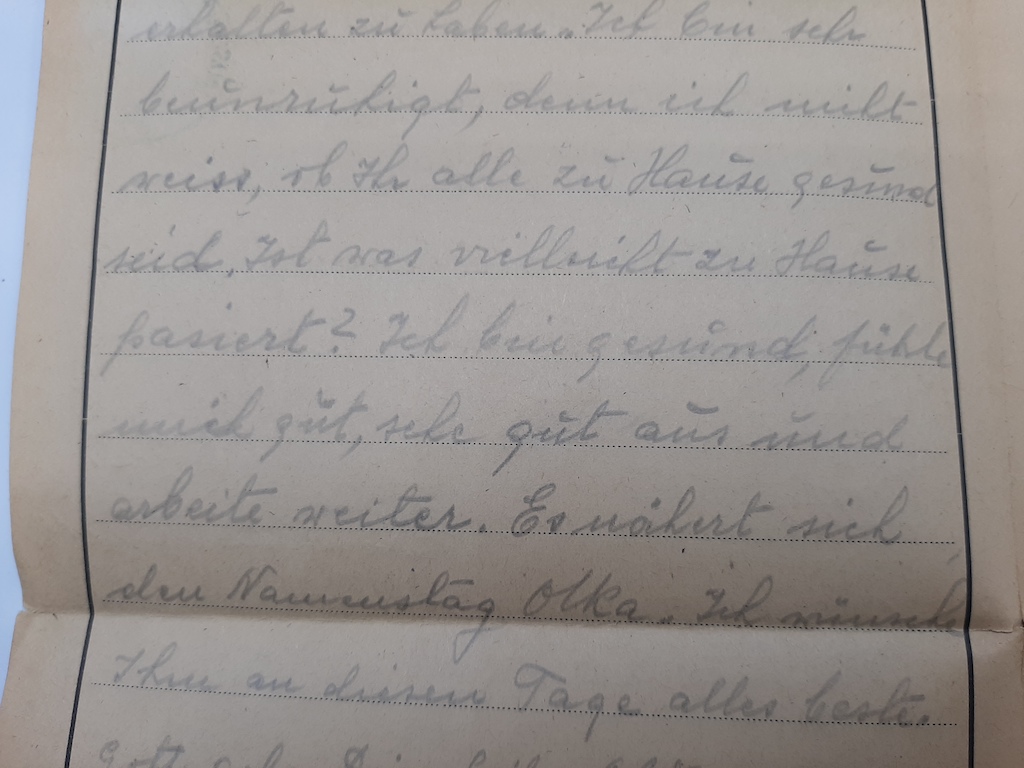 erhalten zu haben. Ich bin sehr
beunruhigt, denn ich nicht
weiss, ob Ihr alle zu Hause gesund
seid. Ist was vielleicht zu Hause
pasiert? Ich bin gesund, fühle
mich gut, sehe gut aus und
arbeite weiter. Es nähert sich
den Namenstag Olka. Ich wünsche
Ihm an diesem Tage alles beste.
Gott